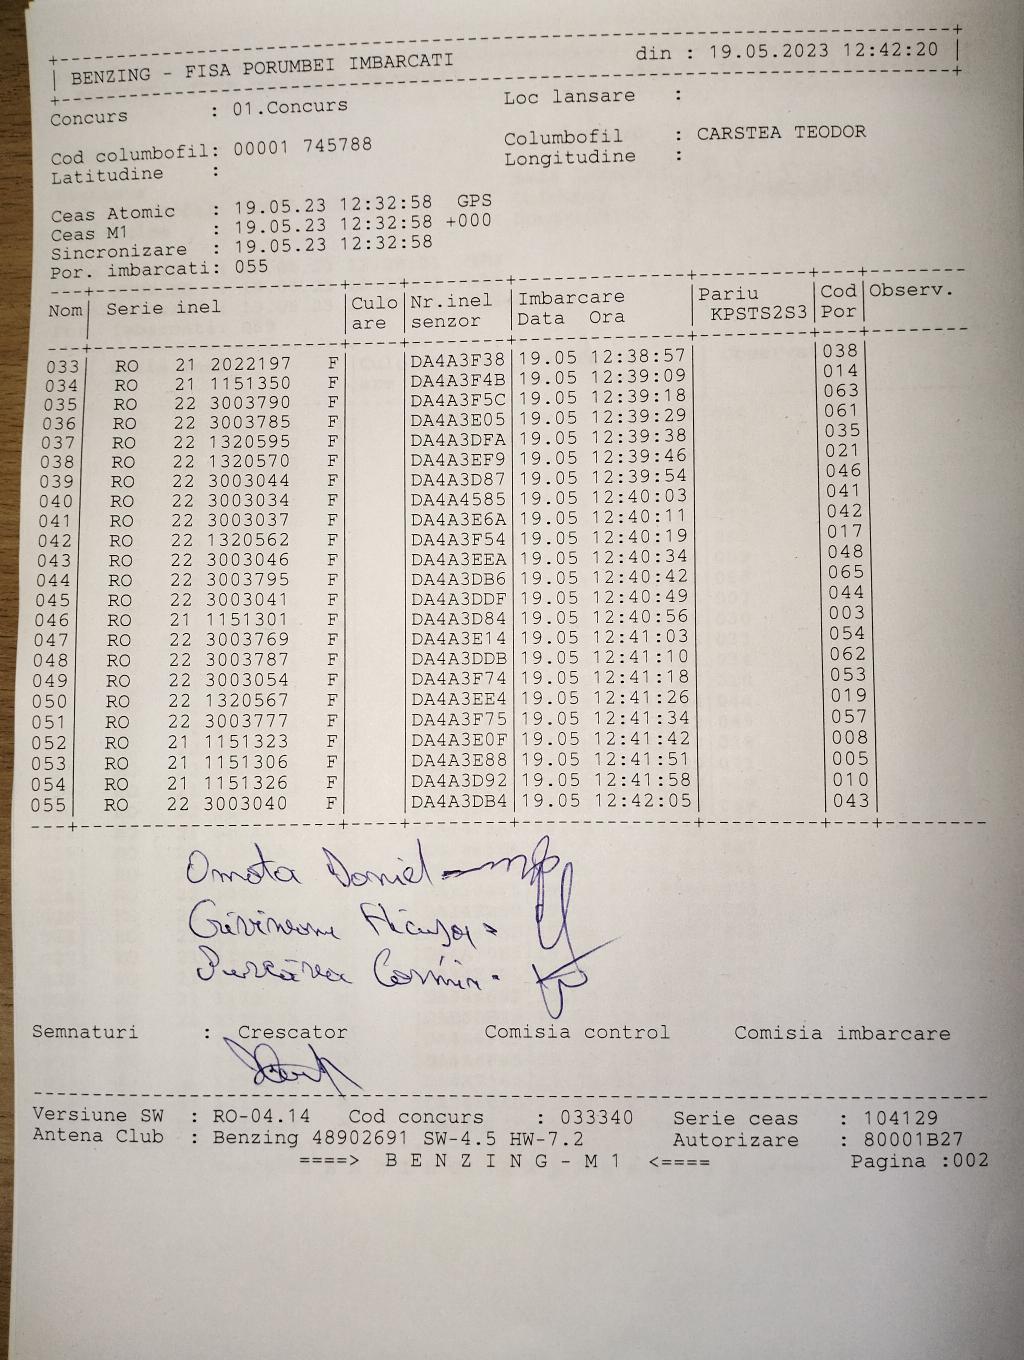 BENZING - FISA PORUMBEI IMBARCATI din : 19.05.2023 12:42:20
Concurs : 01.Concurs Loc lansare :
Cod columbofil: 00001 745788 Columbofil : CARSTEA TEODOR
Latitudine : Longitudine :
Ceas Atomic : 19.05.23 12:32:58 GPS
Ceas M1 : 19.05.23 12:32:58 +000
Sincronizare : 19.05.23 12:32:58
Por. imbarcati: 055
Nom Serie inel Culo Nr.inel Imbarcare Pariu Cod Observ.
are senzor Data Ora KPSTS2S3 Por
033 RO 21 2022197 F DA4A3F38 19.05 12:38:57 038
034 RO 21 1151350 F DA4A3F4B 19.05 12:39:09 014
035 RO 22 3003790 F DA4A3F5C 19.05 12:39:18 063
036 RO 22 3003785 F DA4A3E05 19.05 12:39:29 061
037 RO 22 1320595 F DA4A3DFA 19.05 12:39:38 035
038 RO 22 1320570 F DA4A3EF9 19.05 12:39:46 021
039 RO 22 3003044 F DA4A3D87 19.05 12:39:54 046
040 RO 22 3003034 F DA4A4585 19.05 12:40:03 041
041 RO 22 3003037 F DA4A3E6A 19.05 12:40:11 042
042 RO 22 1320562 F DA4A3F54 19.05 12:40:19 017
043 RO 22 3003046 F DA4A3EEA 19.05 12:40:34 048
044 RO 22 3003795 F DA4A3DB6 19.05 12:40:42 065
045 RO 22 3003041 F DA4A3DDF 19.05 12:40:49 044
046 RO 21 1151301 F DA4A3D84 19.05 12:40:56 003
047 RO 22 3003769 F DA4A3E14 19.05 12:41:03 054
048 RO 22 3003787 F DA4A3DDB 19.05 12:41:10 062
049 RO 22 3003054 F DA4A3F74 19.05 12:41:18 053
050 RO 22 1320567 F DA4A3EE4 19.05 12:41:26 019
051 RO 22 3003777 F DA4A3F75 19.05 12:41:34 057
052 RO 21 1151323 F DA4A3E0F 19.05 12:41:42 008
053 RO 21 1151306 F DA4A3E88 19.05 12:41:51 005
054 RO 21 1151326 F DA4A3D92 19.05 12:41:58 010
055 RO 22 3003040 F DA4A3DB4 19.05 12:42:05 043
Daniel
Cosmin
Semnaturi : Crescator Comisia control Comisia imbarcare
Versiune SW : RO-04.14 Cod concurs : 033340 Serie ceas : 104129
Antena Club : Benzing 48902691 SW-4.5 HW-7.2 Autorizare : 80001B27
====> B E N Z I N G - M 1 <==== Pagina :002